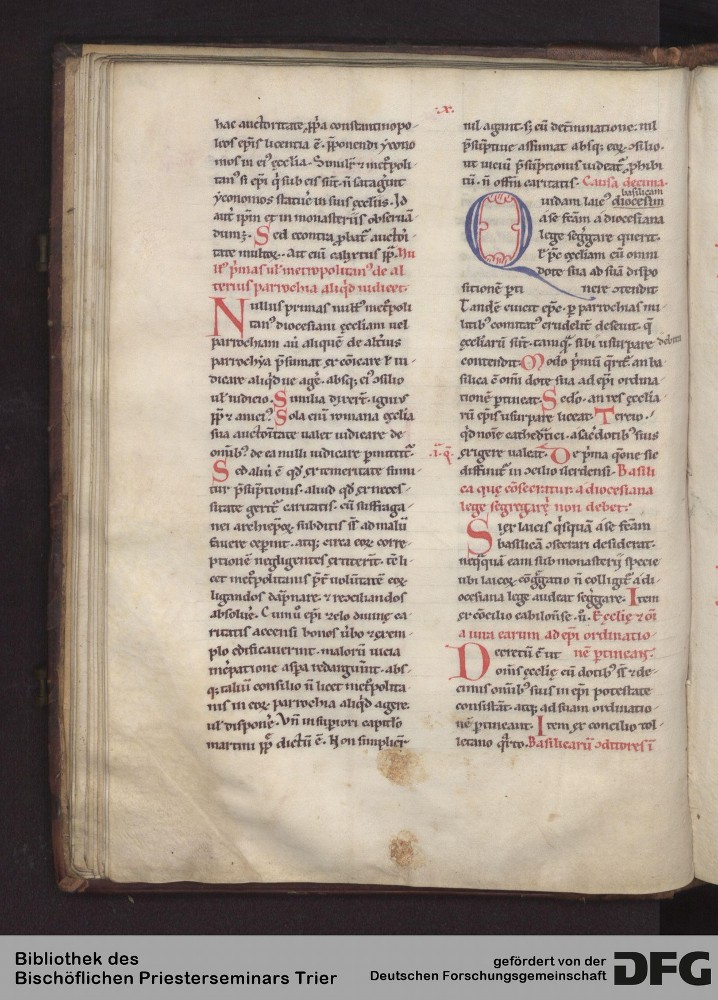 ·x·
hac auctoritate ꝓp̄a constantinopo-
leos ep̄is licentia ē. p̄ponendi ẏcono
mos in ei᾽ ęcclia. Simulr̄ & met͛poli-
tan᾽ si ep̄i q̄ sub eis sūt. n̄ satagūt
ẏconomos statuē in suis ęccliis. Id
aut̄ ip̄m et in monasteriis obseruā
dum;. Sed econtra ꝓbat᾽ auctori-
tate multoꝝ. Ait eni calixtus pp̄. Nu
ll᾽ p̄mas ul̄ metropolitan᾽ de al
terius parrochia aliqd̄ iudicet.
Nullus primas null᾽ met͛poli
tan᾽ diocesani ęccliam uel
parrochiam aū aliquē de alt͛ius
parrochẏa p̄sumat excōicare ł iu-
dicare aliqd̄ ue agē. absq; ei᾽ ɔsilio
ul̄ iudicio. Similia dixert̄. iginus
pp̄ & anici᾽. Sola eni romana ęcclia
sua auctoritate ualet iudicare de
omīb᾽. de ea nulli iudicare pmittit᾽.
Sed aliū ē qd̄ ex temeritate sumi
tur p̄sūptionis. aliud qd̄ ex neces-
sitate gerit᾽ caritatis. cū suffraga-
nei archiep̄oꝝ subditis s̄t ad malū
fauere ceperint. atq; circa eoꝝ corre-
ptionē negligentes extiterīt. tē li-
cet met͛politanis p̄t uolūtatē eoꝝ
ligandos dāpnare. & recɔiliandos
absoluē. Cumu᾽ ep̄i zelo diuinę ca-
ritatis accensi bonos ūbo & exem-
plo edificauerint. maloꝝ uicia
inc͛patione aspa redargunt. abs-
q; taliū consilio n̄ licet met͛polita-
nis in eoꝝ parrochia aliqd̄ agere.
ul̄ disponē. Vn̄ in supiori capitlo
martini pp̄ dictū ē. Non simplicit͛
nil agant. s; cū det͛minatione. nil
p̄sūptiue assumat absq; eoꝝ ɔsilio.
ut uiciū p̄sūptionis uideat᾽ ꝓhibi
tū. n̄ offm̄ caritatis. Causa decima.
basilicam
Quidam laic᾽ diocesim
a se fcām a diocesiana
lege seg͛gare querit.
ł pc̄ ęccliam cū omni
dote sua ad suā dispo
sitionē pti nere ɔtendit
Tandē eiecit ep̄c. p parrochias mi-
litib᾽ comitat᾽ crudelit͛ deseuit. q̄
ęccliarū sūt. tamq᾽ sibi usurpare debita
contendit. Modo p̄mū q̄rit᾽. an ba-
silica ē omi dote sua ad ep̄i ordina-
tionē ptineat. Sēdo. an res ecclia-
rū ep̄is usurpare liceat. Tercio.
qd̄ noīe cathedᵃtici. a sac͛dotib᾽ suis
·i·q̄. exigere ualeat. De p̄ma q̄one sic
diffinit᾽ in ɔcilio ilerdensi. Basili
ca quę cōsecratur a diocesiana
lege segregari non debet.
Si ex laicis q̄squā a se fcām
basilicā ɔsecrari desiderat.
neq̄quā eam sub monasterii specie
ubi laicoꝝ cōg͛gatio n̄ colligit᾽ a di-
ocesiana lege audeat seg͛gare. Item
ex cōcilio cabilon̄se .ii. Ecclię & oī
a iura earum ad ep̄i ordinatio-
Decretū ē ut nē ptineat.
omīs ęcclię cū dotib᾽ s̄t & de-
cimis omīb᾽ suis in ep̄i potestate
consistāt. atq; ad suam ordinatio-
nē ptineant. Item ex concilio tol-
letano q̄rto. Basilicarū ɔditores ī
Bibliothek des
Bischöflichen Priesterseminars Trier
gefördert von der
Deutschen Forschungsgemeinschaft
DFG